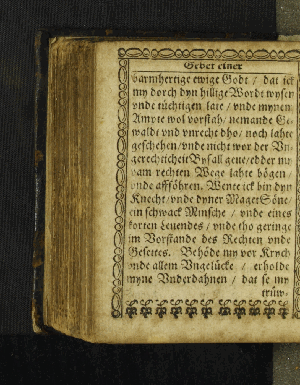 Gebet einer
barmhertige ewige Godt / dat ick
my dorch dyn hillige Wordt wysen
vnde tüchtigen late / vnde mynem
Ampte wol vorstah / nemande Ge-
waldt vnd vnrecht dho / noch lahte
geschehen / vnde nicht vor der Vn-
gerechticheit Byfall geue / edder my
vam rechten Wege lahte bögen /
vnde afföhren. Wente ick bin dyn
Knecht / vnde dyner Maget Söne /
ein schwack Minsche / vnde eines
korten Leuendes / vnde tho geringe
im Vorstande des Rechten vnde
Gesettes. Behöde my vor Krych
vnde allem Vngelücke / erholde
myne Vnderdahnen / dat se my
trüw-